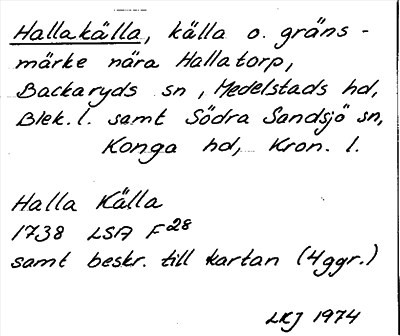 Hallakälla, källa o. gräns-
märke nära Hallatorp,
Backaryds sn, Medelstads hd,
Blek. l. samt Södra Sandsjö sn,
Konga hd, Kron. l.
Halla Källa
1738 LSA F28
samt beskr. till kartan (4ggr.)
LKJ 1974